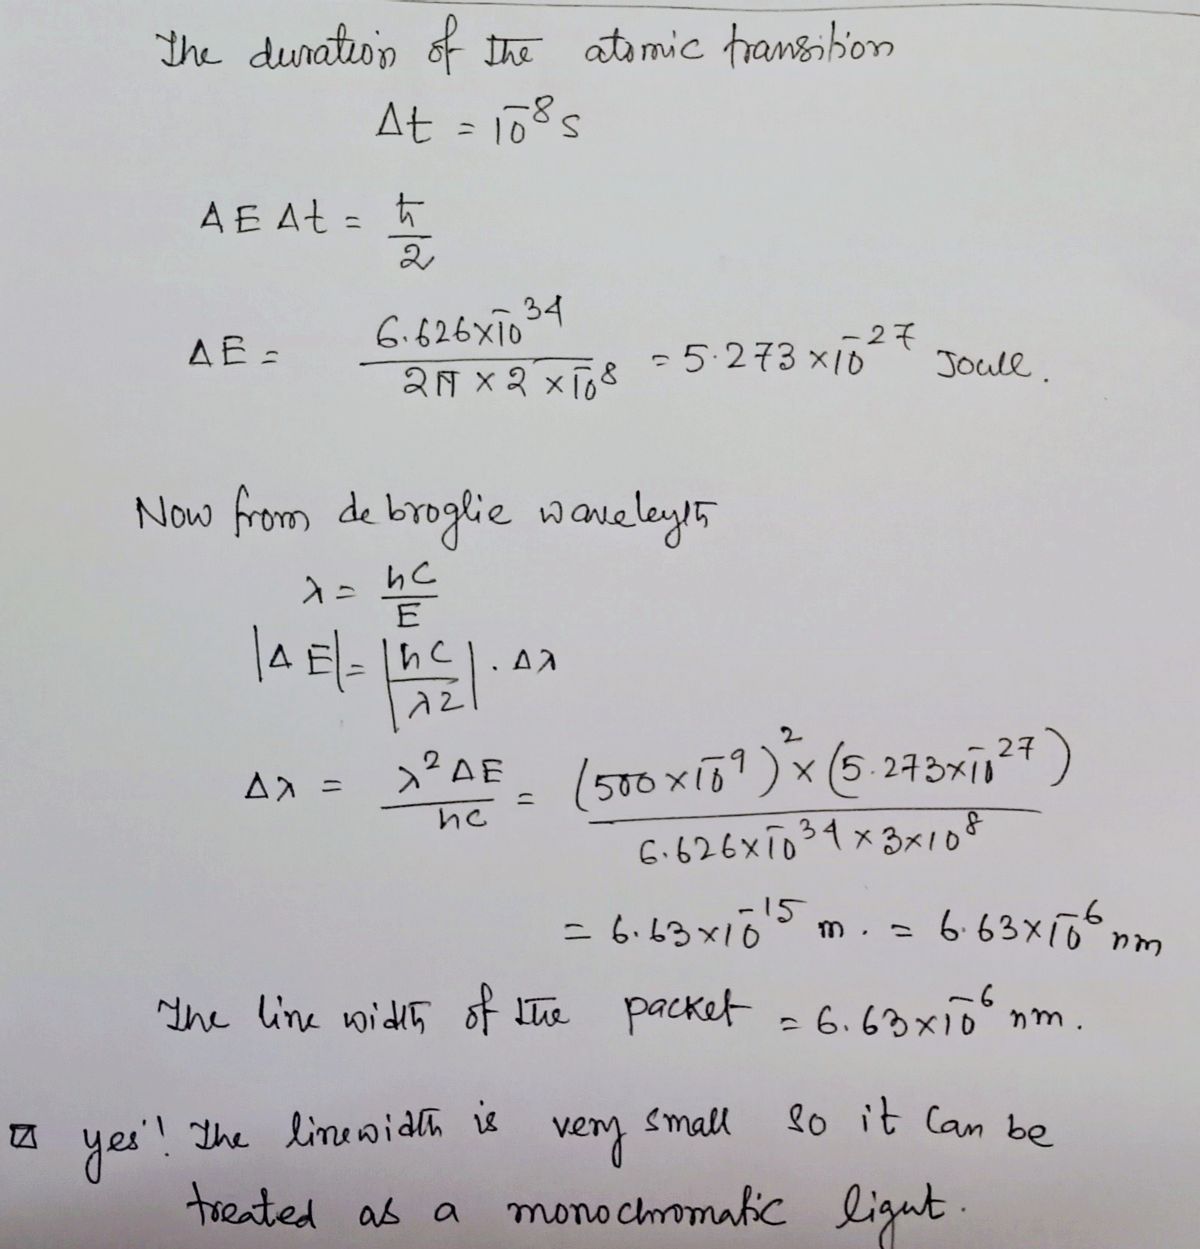 The duration of the atomic transition
Δt = 10⁻⁸ s
ΔE Δt = ħ/2
ΔE = 6.626×10⁻³⁴ / 2π × 2 × 10⁻⁸ = 5.273 × 10⁻²⁷ Joule.
Now from debroglie wavelength
λ = hc/E
|ΔE| = |hc/λ2| . Δλ
Δλ = λ²ΔE/hc = (500×10⁻⁹)² × (5.273×10⁻²⁷) / 6.626×10⁻³⁴ × 3×10⁸
= 6.63×10⁻¹⁵ m. = 6.63×10⁻⁶ nm
The line width of the packet = 6.63×10⁻⁶ nm.
yes! The linewidth is very small so it can be
treated as a monochromatic light.